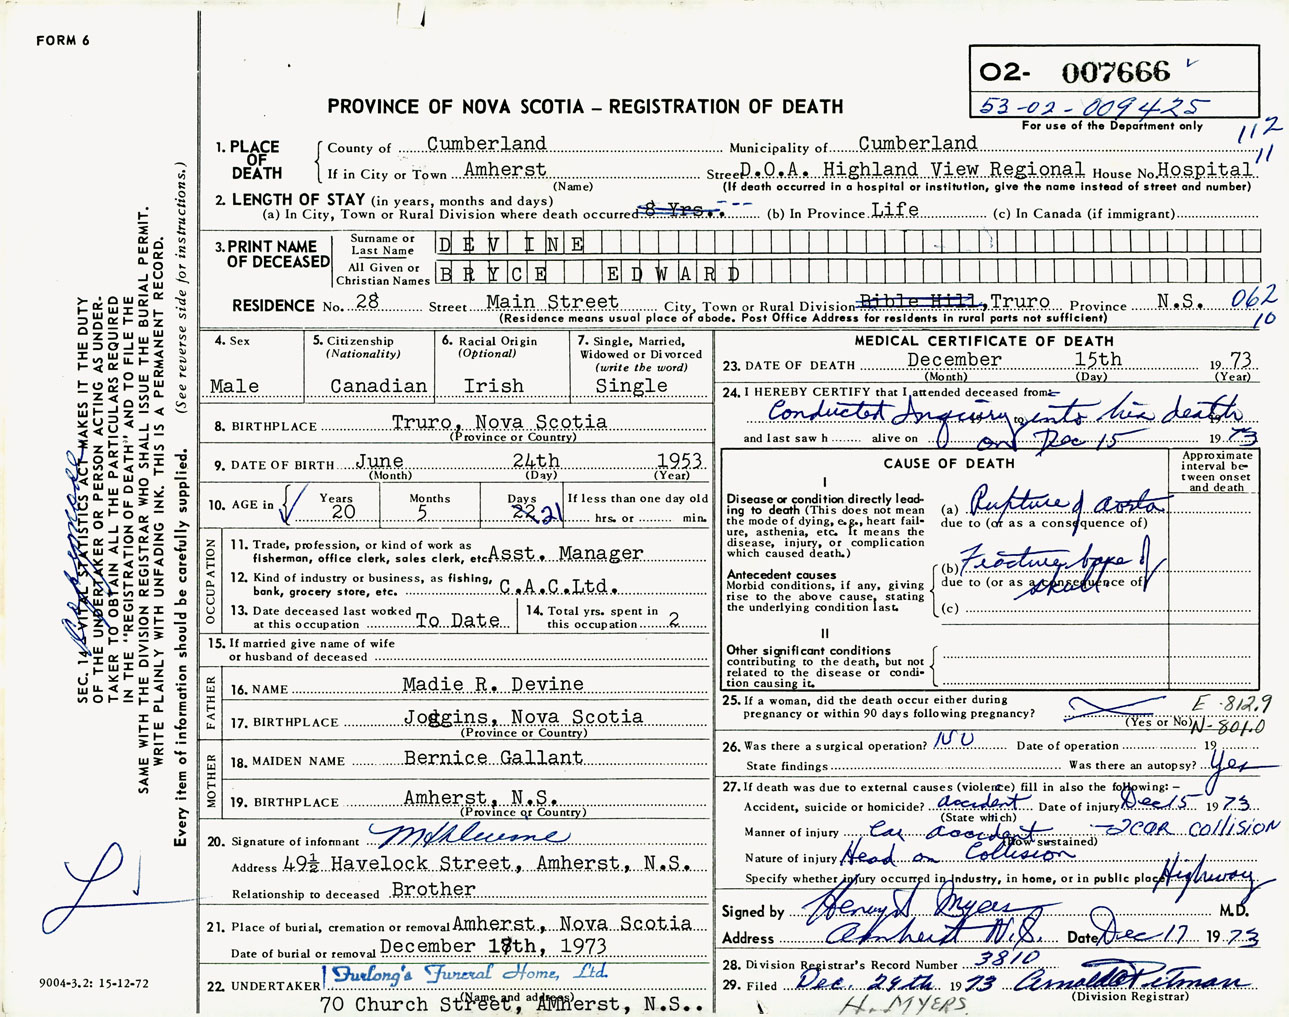 FORM 6
O2- 007666
53-02-009425
For use of the Department only
112
11
PROVINCE OF NOVA SCOTIA – REGISTRATION OF DEATH
1. PLACE OF DEATH
County of Cumberland Municipality of Cumberland
If in City or Town Amherst Street D.O.A. Highland View Regional House No. Hospital
(Name) (If death occurred in a hospital or institution, give the name instead of street and number)
2. LENGTH OF STAY (in years, months and days)
(a) In City, Town or Rural Division where death occurred 8 Yrs. (b) In Province Life (c) In Canada (if immigrant)
3. PRINT NAME OF DECEASED
Surname or Last Name DEVINE
All Given or Christian Names BRYCE EDWARD
RESIDENCE No. 28 Street Main Street City, Town or Rural Division Bible Hill, Truro Province N.S. 062
(Residence means usual place of abode. Post Office Address for residents in rural parts not sufficient) 10
4. Sex
Male
5. Citizenship
(Nationality)
Canadian
6. Racial Origin
(Optional)
Irish
7. Single, Married, Widowed or Divorced
(write the word)
Single
8. BIRTHPLACE Truro, Nova Scotia
(Province or Country)
9. DATE OF BIRTH June 24th 1953
(Month) (Day) (Year)
10. AGE in Years Months Days If less than one day old
20 5 22 21 hrs. or min.
OCCUPATION
11. Trade, profession, or kind of work as
fisherman, office clerk, sales clerk, etc. Asst. Manager
12. Kind of industry or business, as fishing,
bank, grocery store, etc. C.A.C.Ltd.
13. Date deceased last worked
at this occupation To Date
14. Total yrs. spent in
this occupation 2
15. If married give name of wife
or husband of deceased
FATHER
16. NAME Madie R. Devine
17. BIRTHPLACE Joggins, Nova Scotia
(Province or Country)
MOTHER
18. MAIDEN NAME Bernice Gallant
19. BIRTHPLACE Amherst, N.S.
(Province or Country)
20. Signature of informant
Address 49½ Havelock Street, Amherst, N.S.
Relationship to deceased Brother
21. Place of burial, cremation or removal Amherst, Nova Scotia
Date of burial or removal December 18th, 1973
22. UNDERTAKER Furlong's Funeral Home, Ltd.
(Name and address)
70 Church Street, Amherst, N.S..
MEDICAL CERTIFICATE OF DEATH
23. DATE OF DEATH December 15th 1973
(Month) (Day) (Year)
24. I HEREBY CERTIFY that I attended deceased from
Conducted Inquiry to into his death
and last saw h alive on on Dec 15 1973
CAUSE OF DEATH
Approximate interval between onset and death
I
Disease or condition directly leading to death (This does not mean the mode of dying, e.g., heart failure, asthenia, etc. It means the disease, injury, or complication which caused death.)
(a) Rupture of aorta
due to (or as a consequence of)
Antecedent causes
Morbid conditions, if any, giving rise to the above cause, stating the underlying condition last.
(b) Fracture base of skull
due to (or as a consequence of)
(c)
II
Other significant conditions
contributing to the death, but not related to the disease or condition causing it.
25. If a woman, did the death occur either during
pregnancy or within 90 days following pregnancy?
(Yes or No)
E-812.9
N-801.0
26. Was there a surgical operation? NO Date of operation 19
State findings Was there an autopsy? Yes
27. If death was due to external causes (violence) fill in also the following: –
Accident, suicide or homicide? accident Date of injury Dec 15 1973
(State which)
Manner of injury Car accident – 2 CAR COLLISION
(How sustained)
Nature of injury Head on Collision
Specify whether injury occurred in industry, in home, or in public place Highway
Signed by Henry S Myers M.D.
Address Amherst N.S. Date Dec 17 1973
28. Division Registrar's Record Number 3810
29. Filed Dec. 29th 1973 Arnold Pitman
(Division Registrar)
H. MYERS
SEC. 14 – VITAL STATISTICS ACT MAKES IT THE DUTY
OF THE UNDERTAKER OR PERSON ACTING AS UNDER-
TAKER TO OBTAIN ALL THE PARTICULARS REQUIRED
IN THE "REGISTRATION OF DEATH" AND TO FILE THE
SAME WITH THE DIVISION REGISTRAR WHO SHALL ISSUE THE BURIAL PERMIT.
WRITE PLAINLY WITH UNFADING INK. THIS IS A PERMANENT RECORD.
Every item of information should be carefully supplied. (See reverse side for instructions.)
9004-3.2: 15-12-72